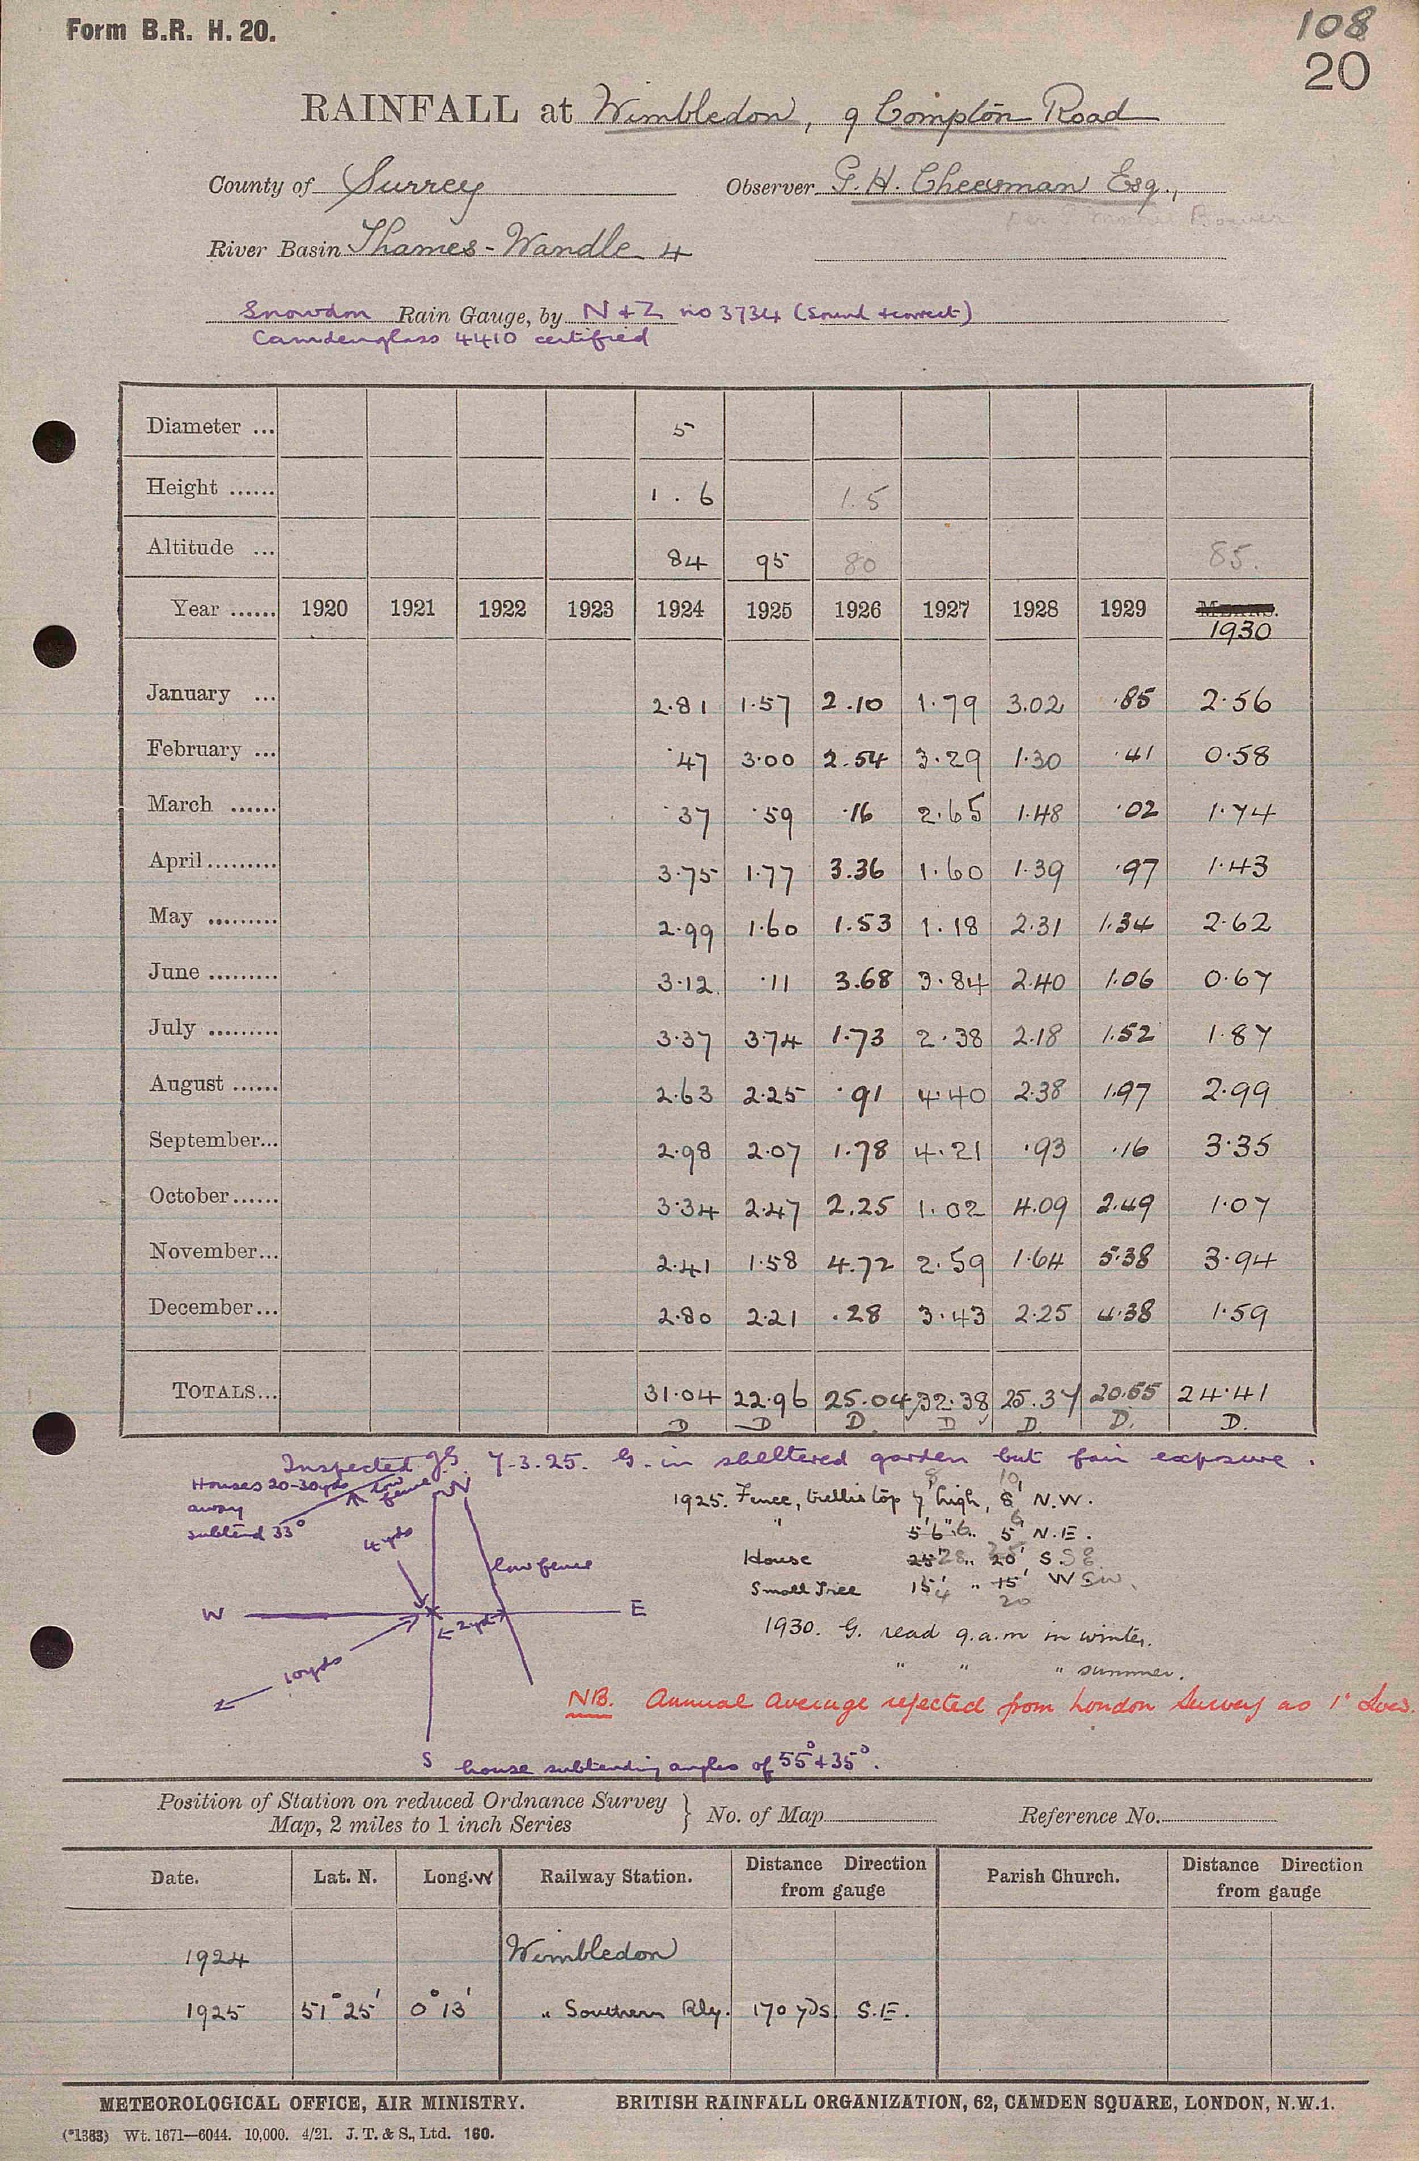 Form B.R. H. 20.
108
20
RAINFALL at Wimbledon, 9 Compton Road
County of Surrey Observer G. H. Cheesman Esq.,
River Basin Thames-Wandle 4
Snowdon Rain Gauge, by N + Z no 3734 (Sound + correct)
Camden glass 4410 certified
Diameter ... 5
Height ...... 1 . 6 1.5
Altitude ... 84 95 80 85.
Year ...... 1920 1921 1922 1923 1924 1925 1926 1927 1928 1929
1930
January ... 2.81 1.57 2.10 1.79 3.02 .85 2.56
February ... .47 3.00 2.54 3.29 1.30 .41 0.58
March ...... .37 .59 .16 2.65 1.48 .02 1.74
April ......... 3.75 1.77 3.36 1.60 1.39 .97 1.43
May ......... 2.99 1.60 1.53 1.18 2.31 1.34 2.62
June ......... 3.12 .11 3.68 3.84 2.40 1.06 0.67
July ......... 3.37 3.74 1.73 2.38 2.18 1.52 1.87
August ...... 2.63 2.25 .91 4.40 2.38 1.97 2.99
September... 2.98 2.07 1.78 4.21 .93 .16 3.35
October ...... 3.34 2.47 2.25 1.02 4.09 2.49 1.07
November... 2.41 1.58 4.72 2.59 1.64 5.38 3.94
December... 2.80 2.21 .28 3.43 2.25 4.38 1.59
TOTALS... 31.04 22.96 25.04 32.38 25.37 20.55 24.41
D D D. D D. D. D.
Inspected JG 7.3.25. G. in sheltered garden but fair exposure.
Houses 20-30yds
away
subtend 33°
low
fence
N
4 yds
low fence
W
E
2yds
10yds
S house subtending angles of 55° + 35°.
1925. Fence, trellis top 7' high, 8' N.W.
" 5'6" 5' N.E.
House 25' " 20' S.
Small Tree 15' " 15' W
20
1930. G. read 9.a.m in winter.
" " " summer.
NB. Annual average rejected from London Survey as 1" low.
Position of Station on reduced Ordnance Survey
Map, 2 miles to 1 inch Series } No. of Map Reference No.
Date. Lat. N. Long. W Railway Station. Distance Direction from gauge Parish Church. Distance Direction from gauge
1924 Wimbledon
1925 51° 25' 0° 13' " Southern Rly. 170 yds. S.E.
METEOROLOGICAL OFFICE, AIR MINISTRY. BRITISH RAINFALL ORGANIZATION, 62, CAMDEN SQUARE, LONDON, N.W.1.
(*1383) Wt. 1671—6044. 10,000. 4/21. J. T. & S., Ltd. 160.